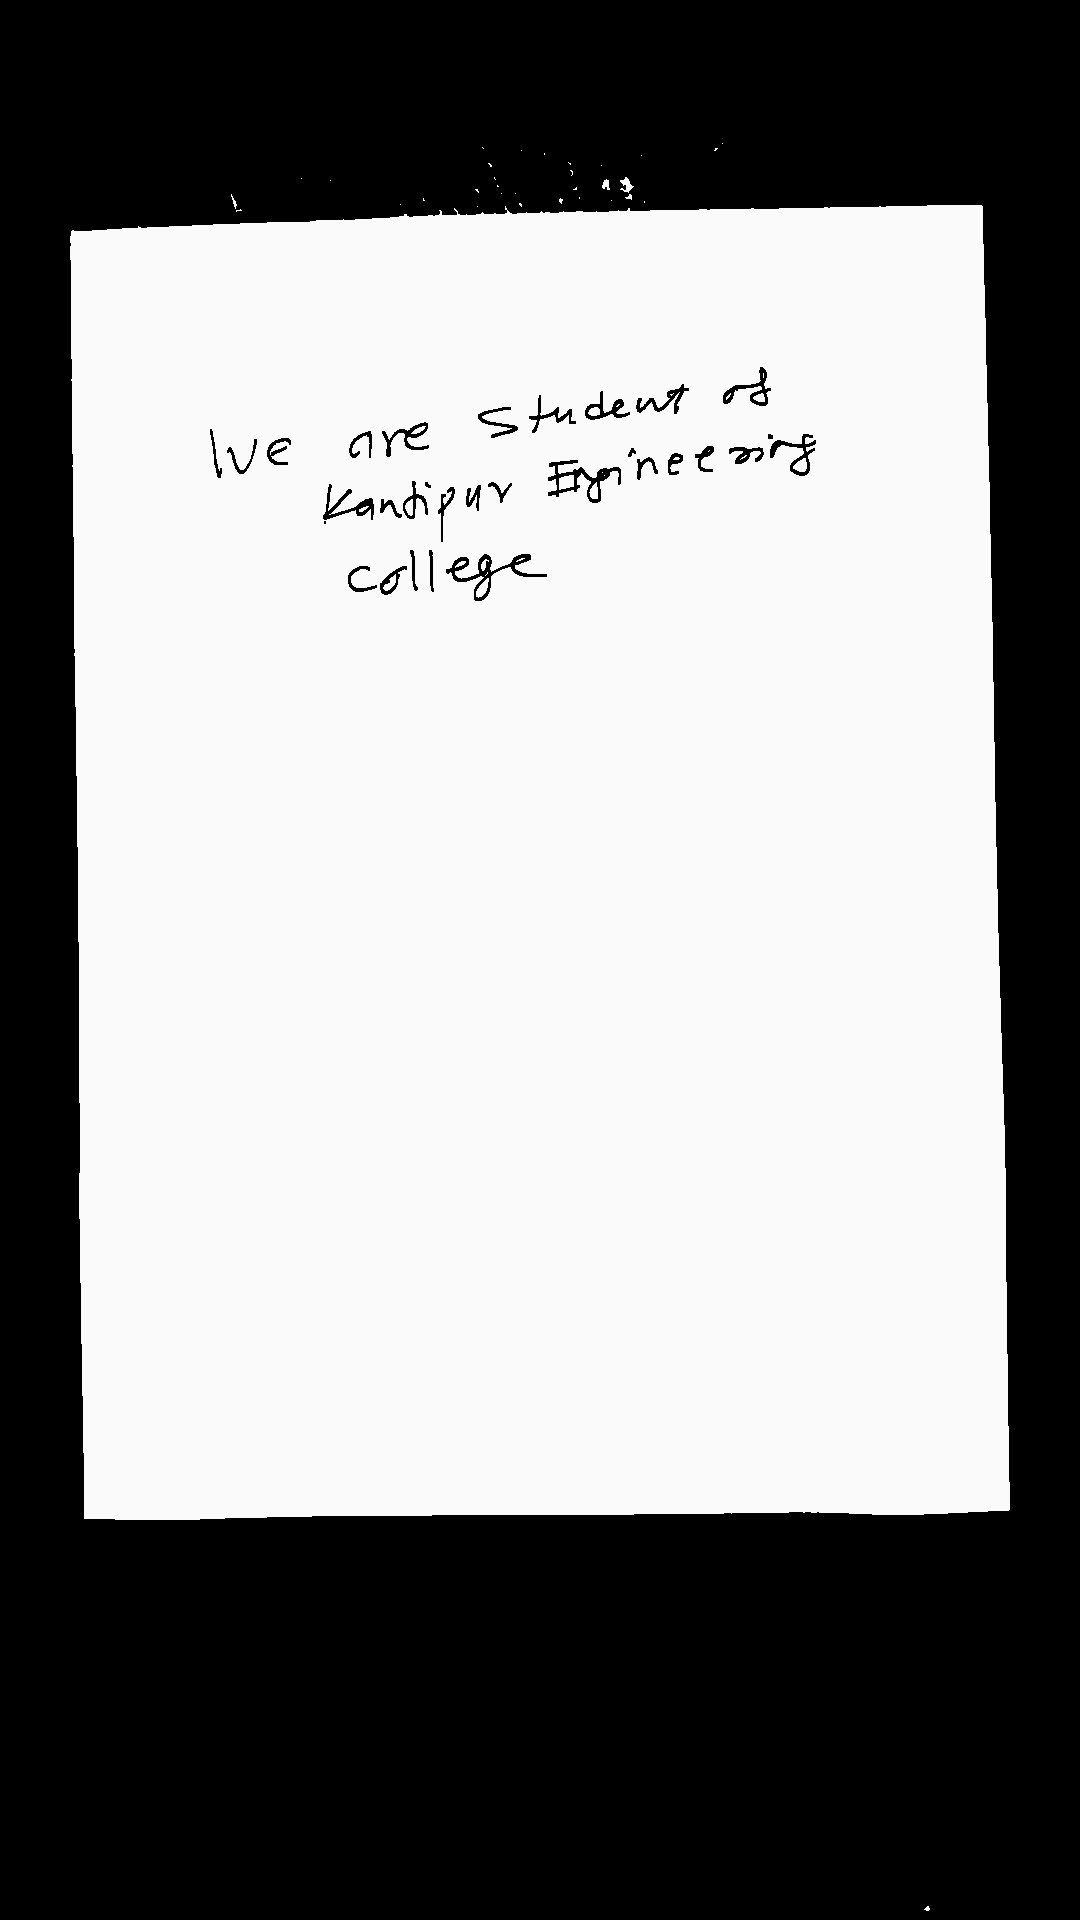 We are Student of
Kantipur Engineering
college